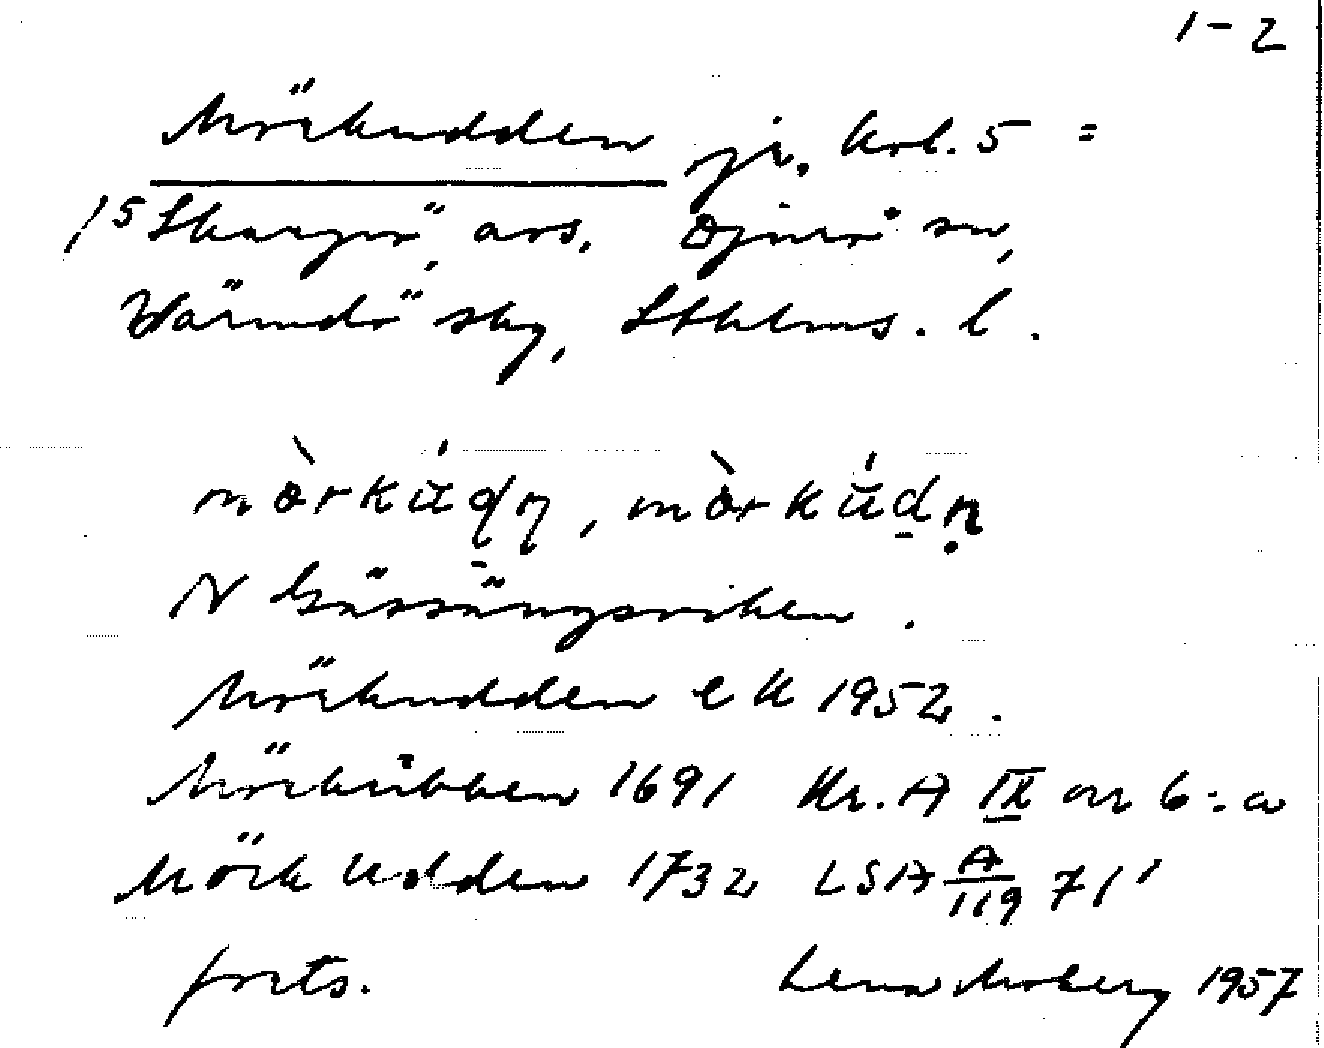 1-2
Mörkudden jr, krl. 5 =
/5 Skarpö, avs. Djurö sn,
Värmdö skg, Sthlms. l.
mòrkúdn, mòrkúdn
N Gässängsviken.
Mörkudden ek 1952.
Mörkubben 1691 Kr. A IX nr 6:a
Mörk Udden 1732 LSA A/119 71'
forts. Lena Moberg 1957